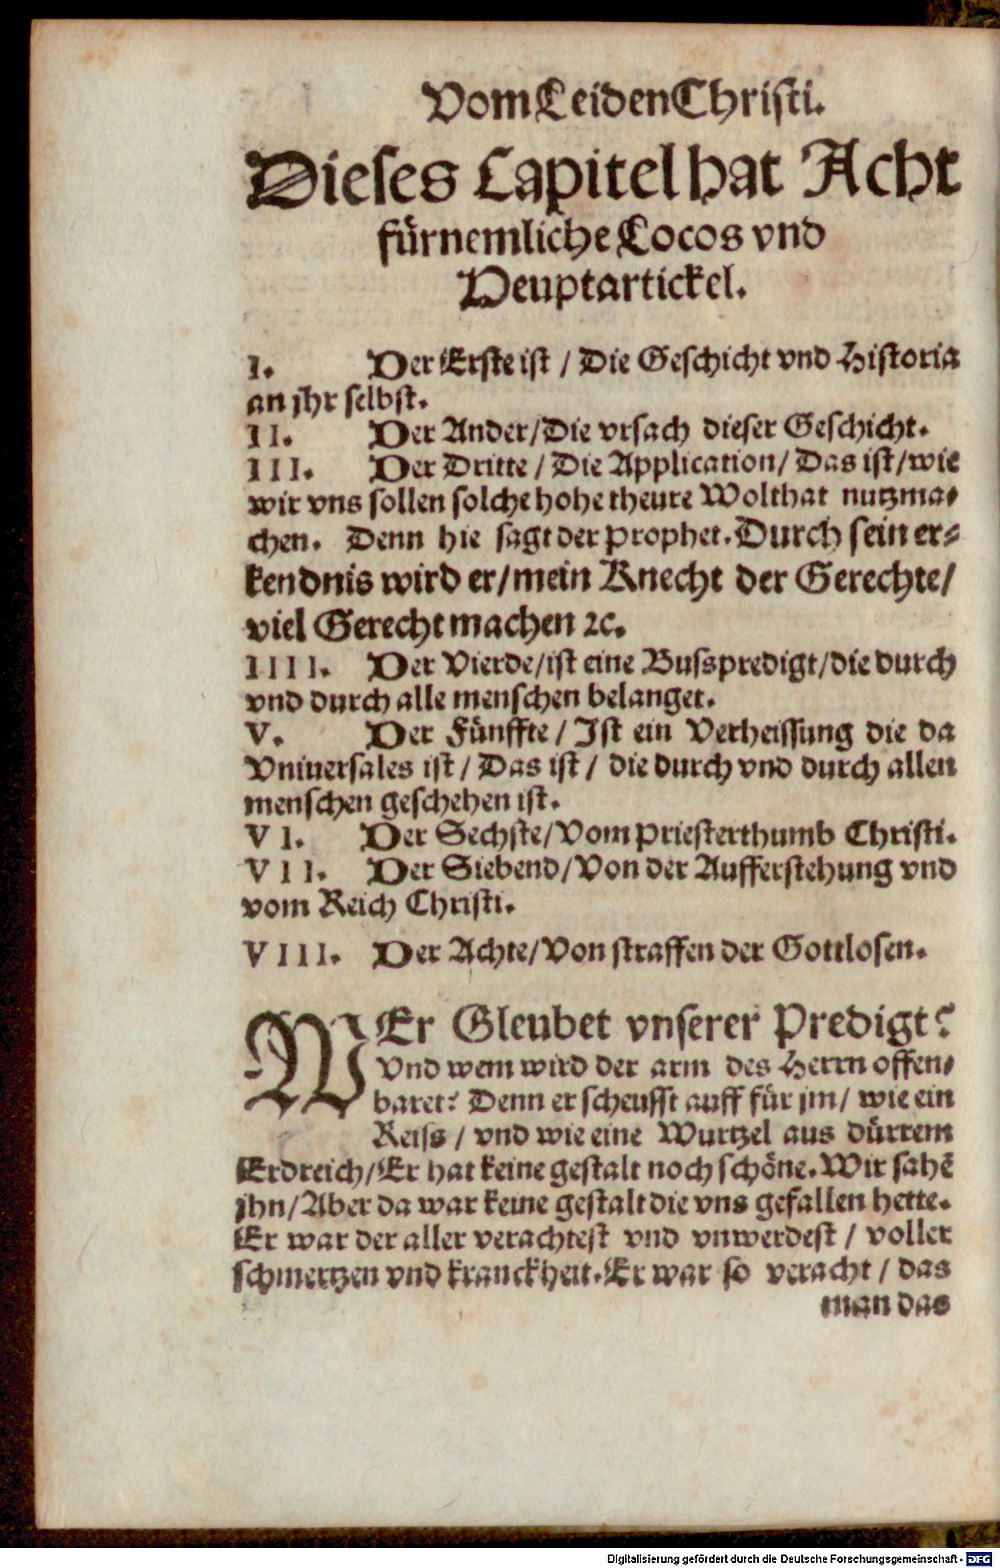 Vom Leiden Christi.
Dieses Capitel hat Acht
fürnemliche Locos vnd
Heuptartickel.
I. Der Erste ist / Die Geschicht vnd Historia
an jhr selbst.
II. Der Ander/Die vrsach dieser Geschicht.
III. Der Dritte / Die Application/ Das ist/wie
wir vns sollen solche hohe theure Wolthat nutzma-
chen. Denn hie sagt der Prophet. Durch sein er-
kendnis wird er/mein Knecht der Gerechte/
viel Gerecht machen ꝛc.
IIII. Der Vierde/ist eine Busspredigt/die durch
vnd durch alle menschen belanget.
V. Der Fünffte / Ist ein Verheissung die da
Vniuersales ist/ Das ist/ die durch vnd durch allen
menschen geschehen ist.
VI. Der Sechste/Vom Priesterthumb Christi.
VII. Der Siebend/Von der Aufferstehung vnd
vom Reich Christi.
VIII. Der Achte/Von straffen der Gottlosen.
WEr Gleubet vnserer Predigt?
Vnd wem wird der arm des Herrn offen-
baret? Denn er scheusst auff für jm/ wie ein
Reiss / vnd wie eine Wurtzel aus dürrem
Erdreich/Er hat keine gestalt noch schöne. Wir sahē
jhn/Aber da war keine gestalt die vns gefallen hette.
Er war der aller verachtest vnd vnwerdest / voller
schmertzen vnd kranckheit. Er war so veracht / das
man das
Digitalisierung gefördert durch die Deutsche Forschungsgemeinschaft - DFG